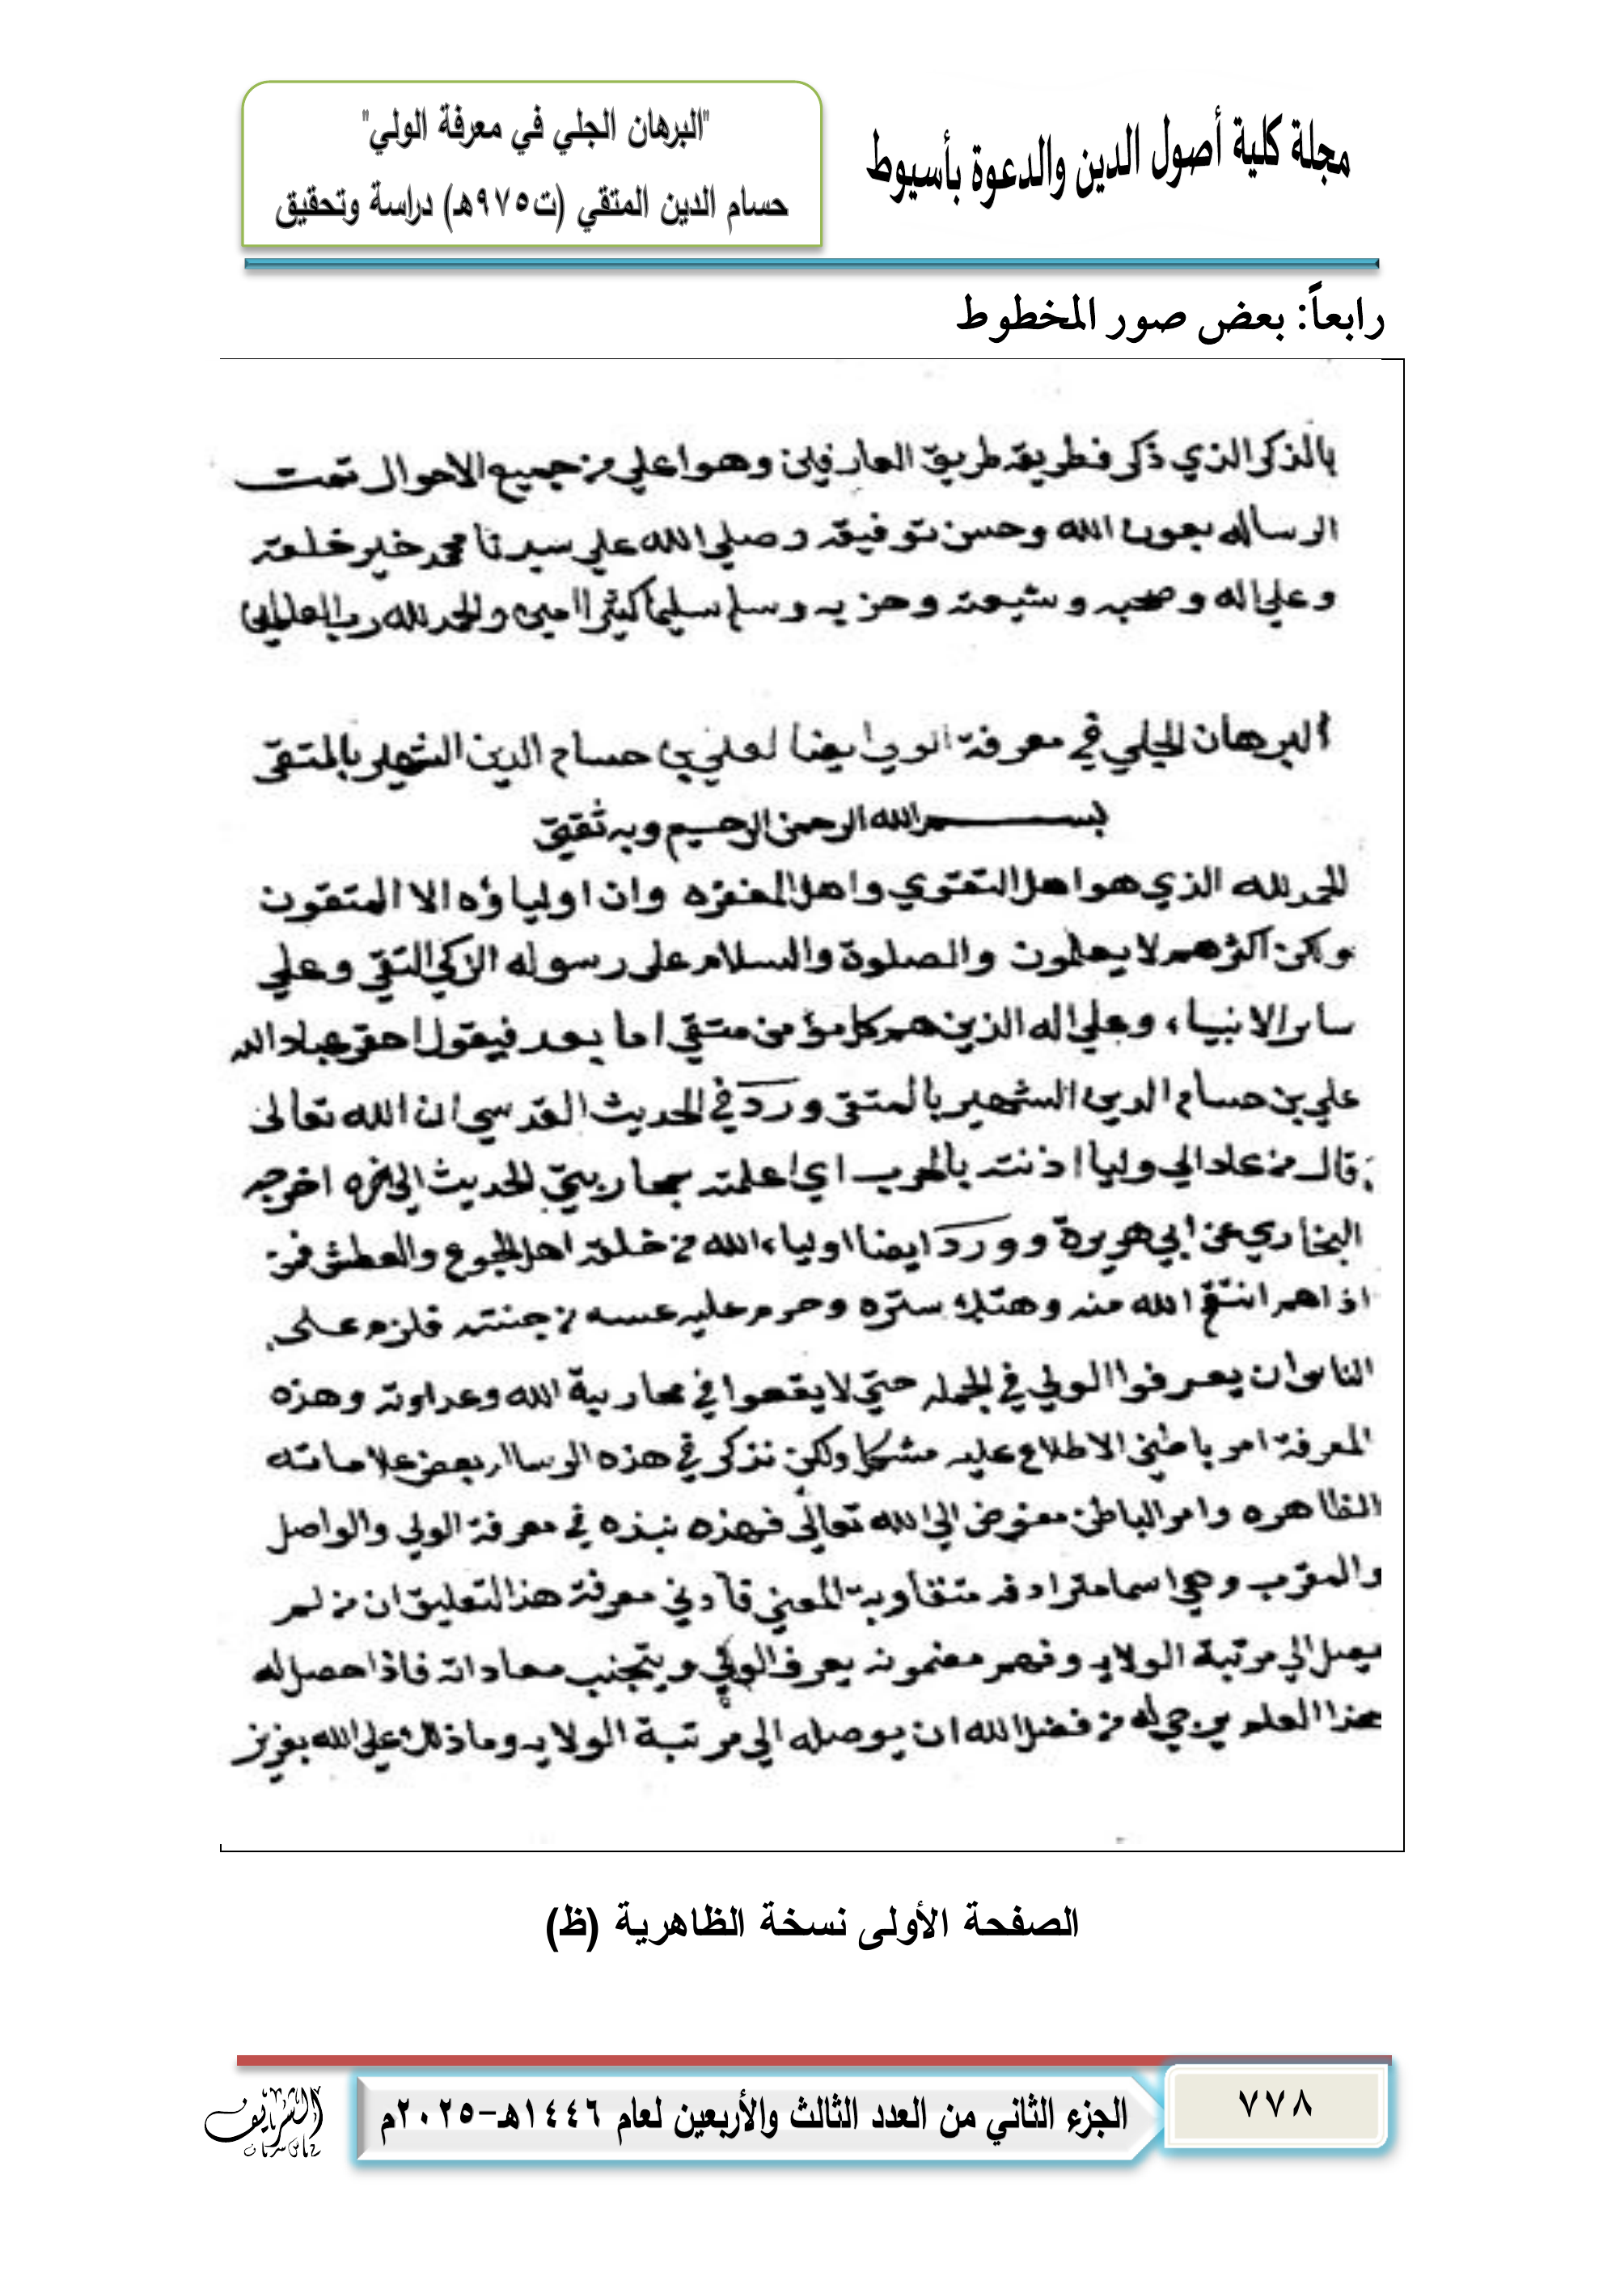 مجلة كلية أصول الدين والدعوة بأسيوط
"البرهان الجلي في معرفة الولي"
حسام الدين المتقي (ت٩٧٥هـ) دراسة وتحقيق
رابعاً: بعض صور المخطوط
بالذكر الذي ذكر فطريقه طريق العارفين وهو اعلي من جميع الاحوال تمت
الرساله بعون الله وحسن توفيقه وصلي الله علي سيدنا محمد خير خلقه
وعلي اله وصحبه وشيعته وحزبه وسلم تسليما كثيرا امين والحمد لله رب العلمين
البرهان الجلي في معرفة الولي ايضا لعلي بن حسام الدين الشهير بالمتقي
بسم الله الرحمن الرحيم وبه ثقتي
الحمد لله الذي هو اهل التقوي واهل المغفره وان اولياؤه الا المتقون
ولكن اكثرهم لا يعلمون والصلوة والسلام على رسوله الزكي التقي وعلي
ساير الانبياء وعلي اله الذين هم كل مؤمن متقي اما بعد فيقول احقر عباد الله
علي بن حسام الدين الشهير بالمتقي ورد في الحديث القدسي ان الله تعالى
قال من عادا لي وليا اذنته بالحرب اي اعلمته بمحاربتي الحديث الي اخره اخرجه
البخاري عن ابي هريرة وورد ايضا اولياء الله من خلقه اهل الجوع والعطش فمن
اذاهم انتقم الله منه وهتك ستره وحرم عليه من جنته فلزم على
الناس ان يعرفوا الولي في الجمله حتي لا يقعوا في محاربة الله وعداوته وهذه
المعرفة امر باطني الاطلاع عليه مشكل ولكن نذكر في هذه الرساله بعض علاماته
الظاهره وامر الباطن مفوض الي الله تعالى فهذه نبذه في معرفة الولي والواصل
والمقرب وهي اسما مترادفه متقاربة المعني فادني معرفة هذا التعليق ان من لم
يصل الي مرتبة الولايه وفهم مضمونه يعرف الولي ويتجنب معاداته فاذا حصل له
هذا العلم يرجي له من فضل الله ان يوصله الي مرتبة الولايه وما ذلك علي الله بعزيز
الصفحة الأولى نسخة الظاهرية (ظ)
٧٧٨
الجزء الثاني من العدد الثالث والأربعين لعام ١٤٤٦هـ-٢٠٢٥م